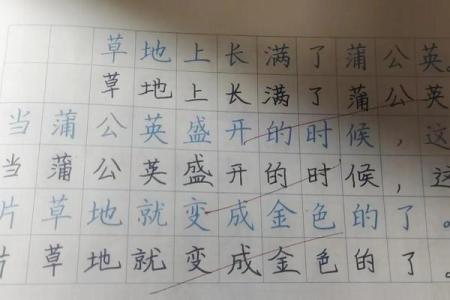 草地上长满了蒲公英。
草地上长满了蒲公英
当蒲公英盛开的时候，这
当蒲公英盛开的时候，这
片草地就变成金色的了。
片草地就变成金色的了。